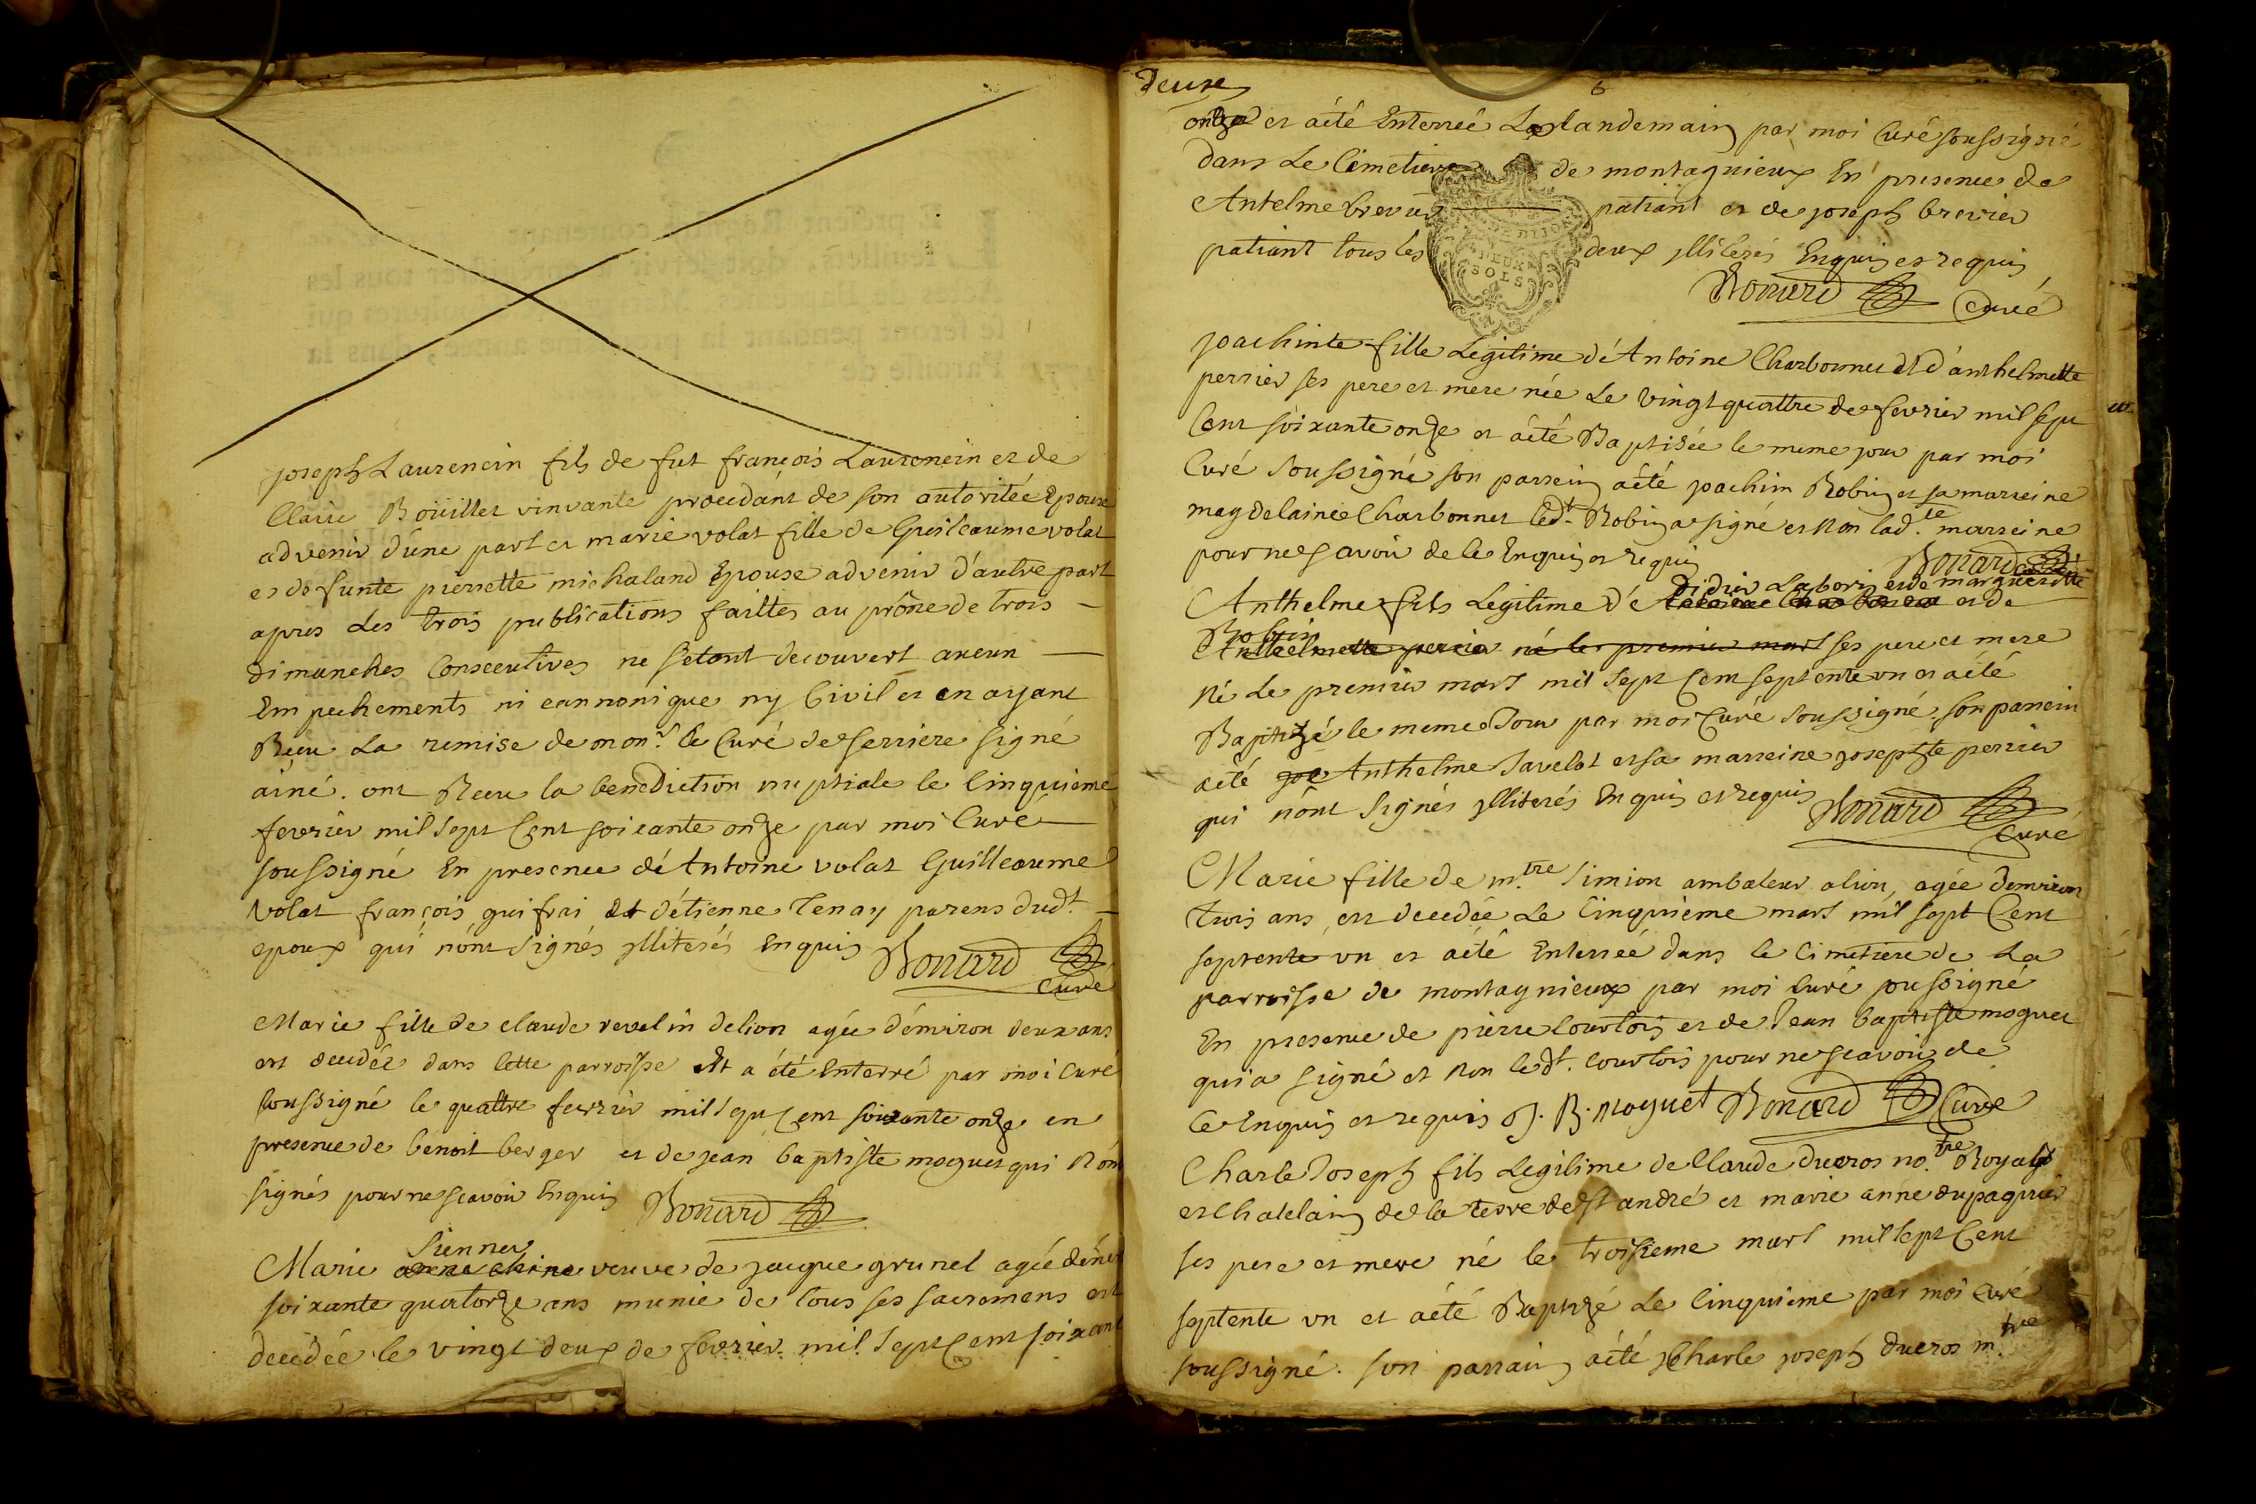 joseph Laurencin fils de fut françois Laurencin et de
Claire Boüillet vinvante procedant de son autoritée Epoux
advenir d'une part et marie volat fille de Guilleaume volat
et defunte pierrette michaland Epouse advenir d'autre part
apres les trois publications faittes au prône de trois
dimanches Consecutives ne setant decouvert aucun
Empechements ni cannonique ny Civil et en ayant
Reçu La remise de monr. le Curé de serriere signé
ainé. ont Reçu la benediction nuptiale le Cinquieme
fevrier mil sept Cent soixante onze par moi Curé
soussigné En presence dé Antoine volat Guilleaume
volat françois guifrai et d'étienne Tenay parens dudt.
epoux qui n'ont signés ylliterés Enquis Bonard
Curé
Marie fille de claude revelin delion agée d'environ deux ans
est decedée dans Cette parroisse et a été Enterré par moi Curé
soussigné le quattre fevrier mil sept Cent soixante onze en
presence de benoit berger et de jean baptiste moguet qui n'ont
signés pour ne scavoir Enquis Bonard
siennes
Marie veuve de jacque grunel agée d'env
soixante quatorze ans munie de tous ses sacremens est
decédée le vingt deux de fevrier mil sept Cent soixant
6
onze et aété Enterrée Le landemain par moi Curé soussigné
dans Le Cimetiere de montagnieux En presence de
Antelme brevier patiant et de joseph brevier
patiant tous les deux ylliterés Enquis et requis
DE DIJON
DEUX
SOLS
Bonard Curé
joachinte fille Légitime dé Antoine Charbonnet et d'anthelmette
perrier ses pere et mere née Le vingt quattre de fevrier mil sept
Cent soixante onze et aété Baptisée le meme jour par moi
Curé soussigné son parrein aété joachim Robin et sa marreine
magdelaine Charbonnet ledt. Robin a signé et non ladte. marreine
pour ne scavoir de le Enquis et requis Bonard Curé
didier Laborin et de marguerette
Anthelme fils Légitime d'é Antoine Charbonnet et de
Robin
Anthelmette perrier né le premier mart ses pere et mere
Né Le premier mars mil sept Cent septente un et aété
Baptizé le meme Jour par moi Curé soussigné son parrein
aété jos Anthelme Javelot et sa marreine josephte perrier
qui n'ont signés ylliterés Enquis et requis Bonard
Curé
Marie fille de mtre. simion ambaleur alion, agée d'environ
trois ans, est decedée Le Cinquieme mars mil sept Cent
septente un et aété Enterreé dans le Cimetiere de La
parroisse de montagnieux par moi Curé soussigné
En presence de pierre Courtois et de Jean baptiste moguet
qui a signé et non ledt. Courtois pour ne scavoir de
Ce Enquis et requis J. B. moguet Bonard Curé
Charle Joseph fils Légitime de Claude ducros notre. Royal
et Chatelain de la terre de st andré et marie anne dupaquier
ses pere et mere né le troisieme mars mil sept Cent
septente un et aété Baptizé Le Cinquieme par moi Curé
soussigné. son parrain aété Charle joseph ducros mtre